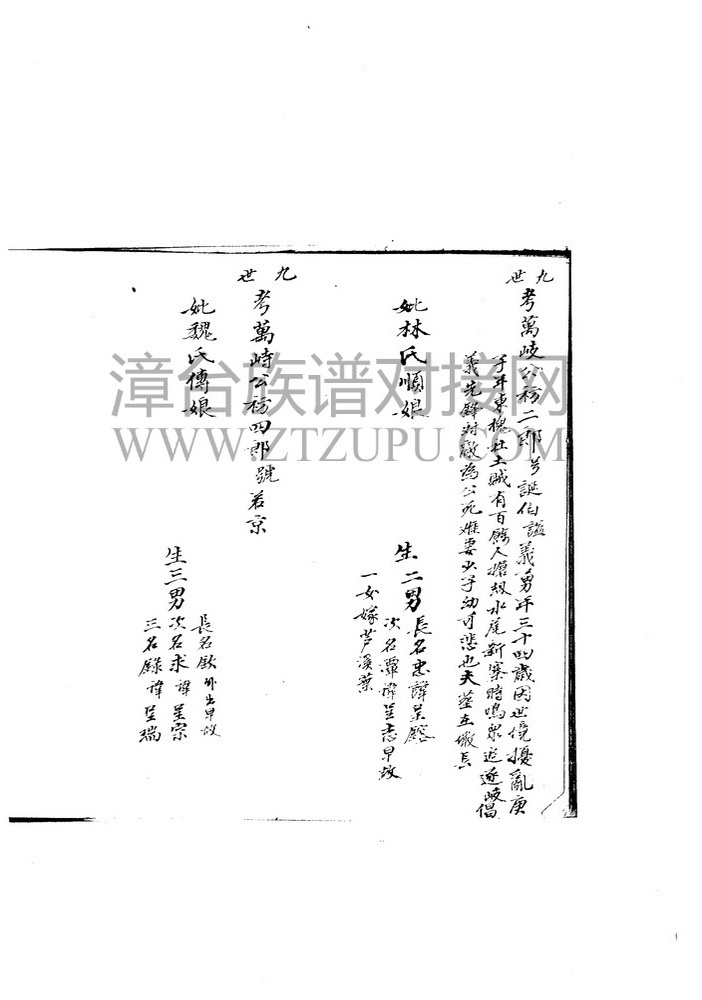 九世
考萬岐公行二郎号誕伯謚義勇年三十四歲因世境擾亂庚
子年東槐社土賊有百餘人擄級水尾新寨時鳴眾追逐岐倡
義先鋒对敵為公死难妻少子幼可悲也夫葬在墩兵
妣林氏順娘
生二男
長名忠諱呈
次名潭諱呈志早故
一女嫁芦溪葉
九世
考萬峙公行四郎號若京
妣魏氏傳娘
生三男
長名欽外出早故
次名求諱呈宗
三名錄諱呈瑞
漳台族谱对接网
WWW.ZTZUPU.COM